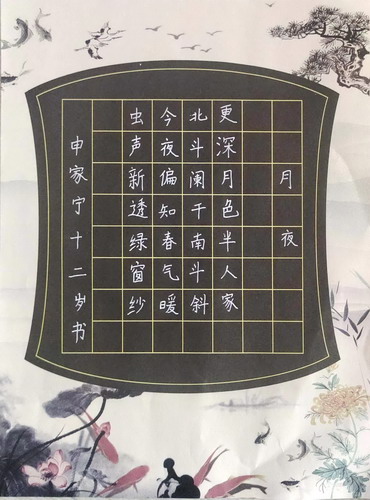 月夜
更深月色半人家
北斗阑干南斗斜
今夜偏知春气暖
虫声新透绿窗纱
申家宁十二岁书